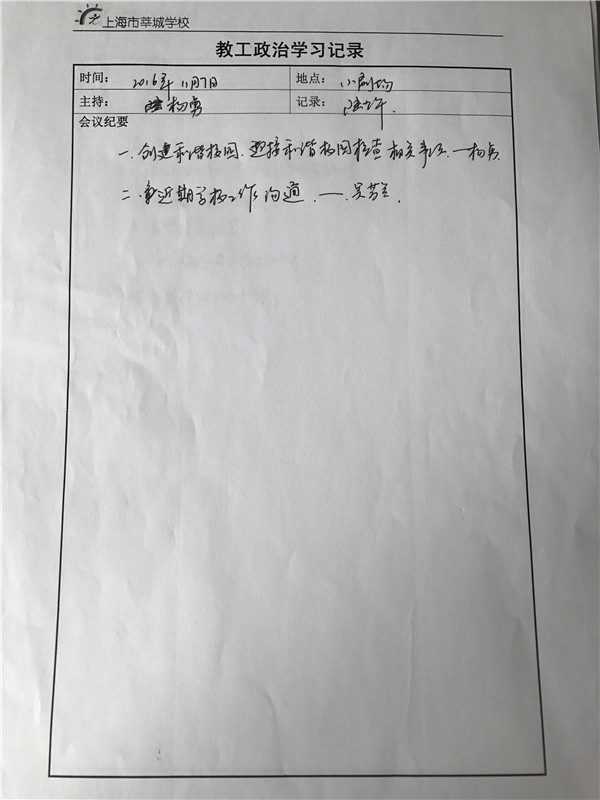 上海市莘城学校
教工政治学习记录
时间： 2016年11月7日 地点： 小剧场
主持： 杨勇 记录：
会议纪要
一、创建和谐校园，迎接和谐校园检查相关事项 —杨勇
二、近期学校工作沟通 — 吴芳